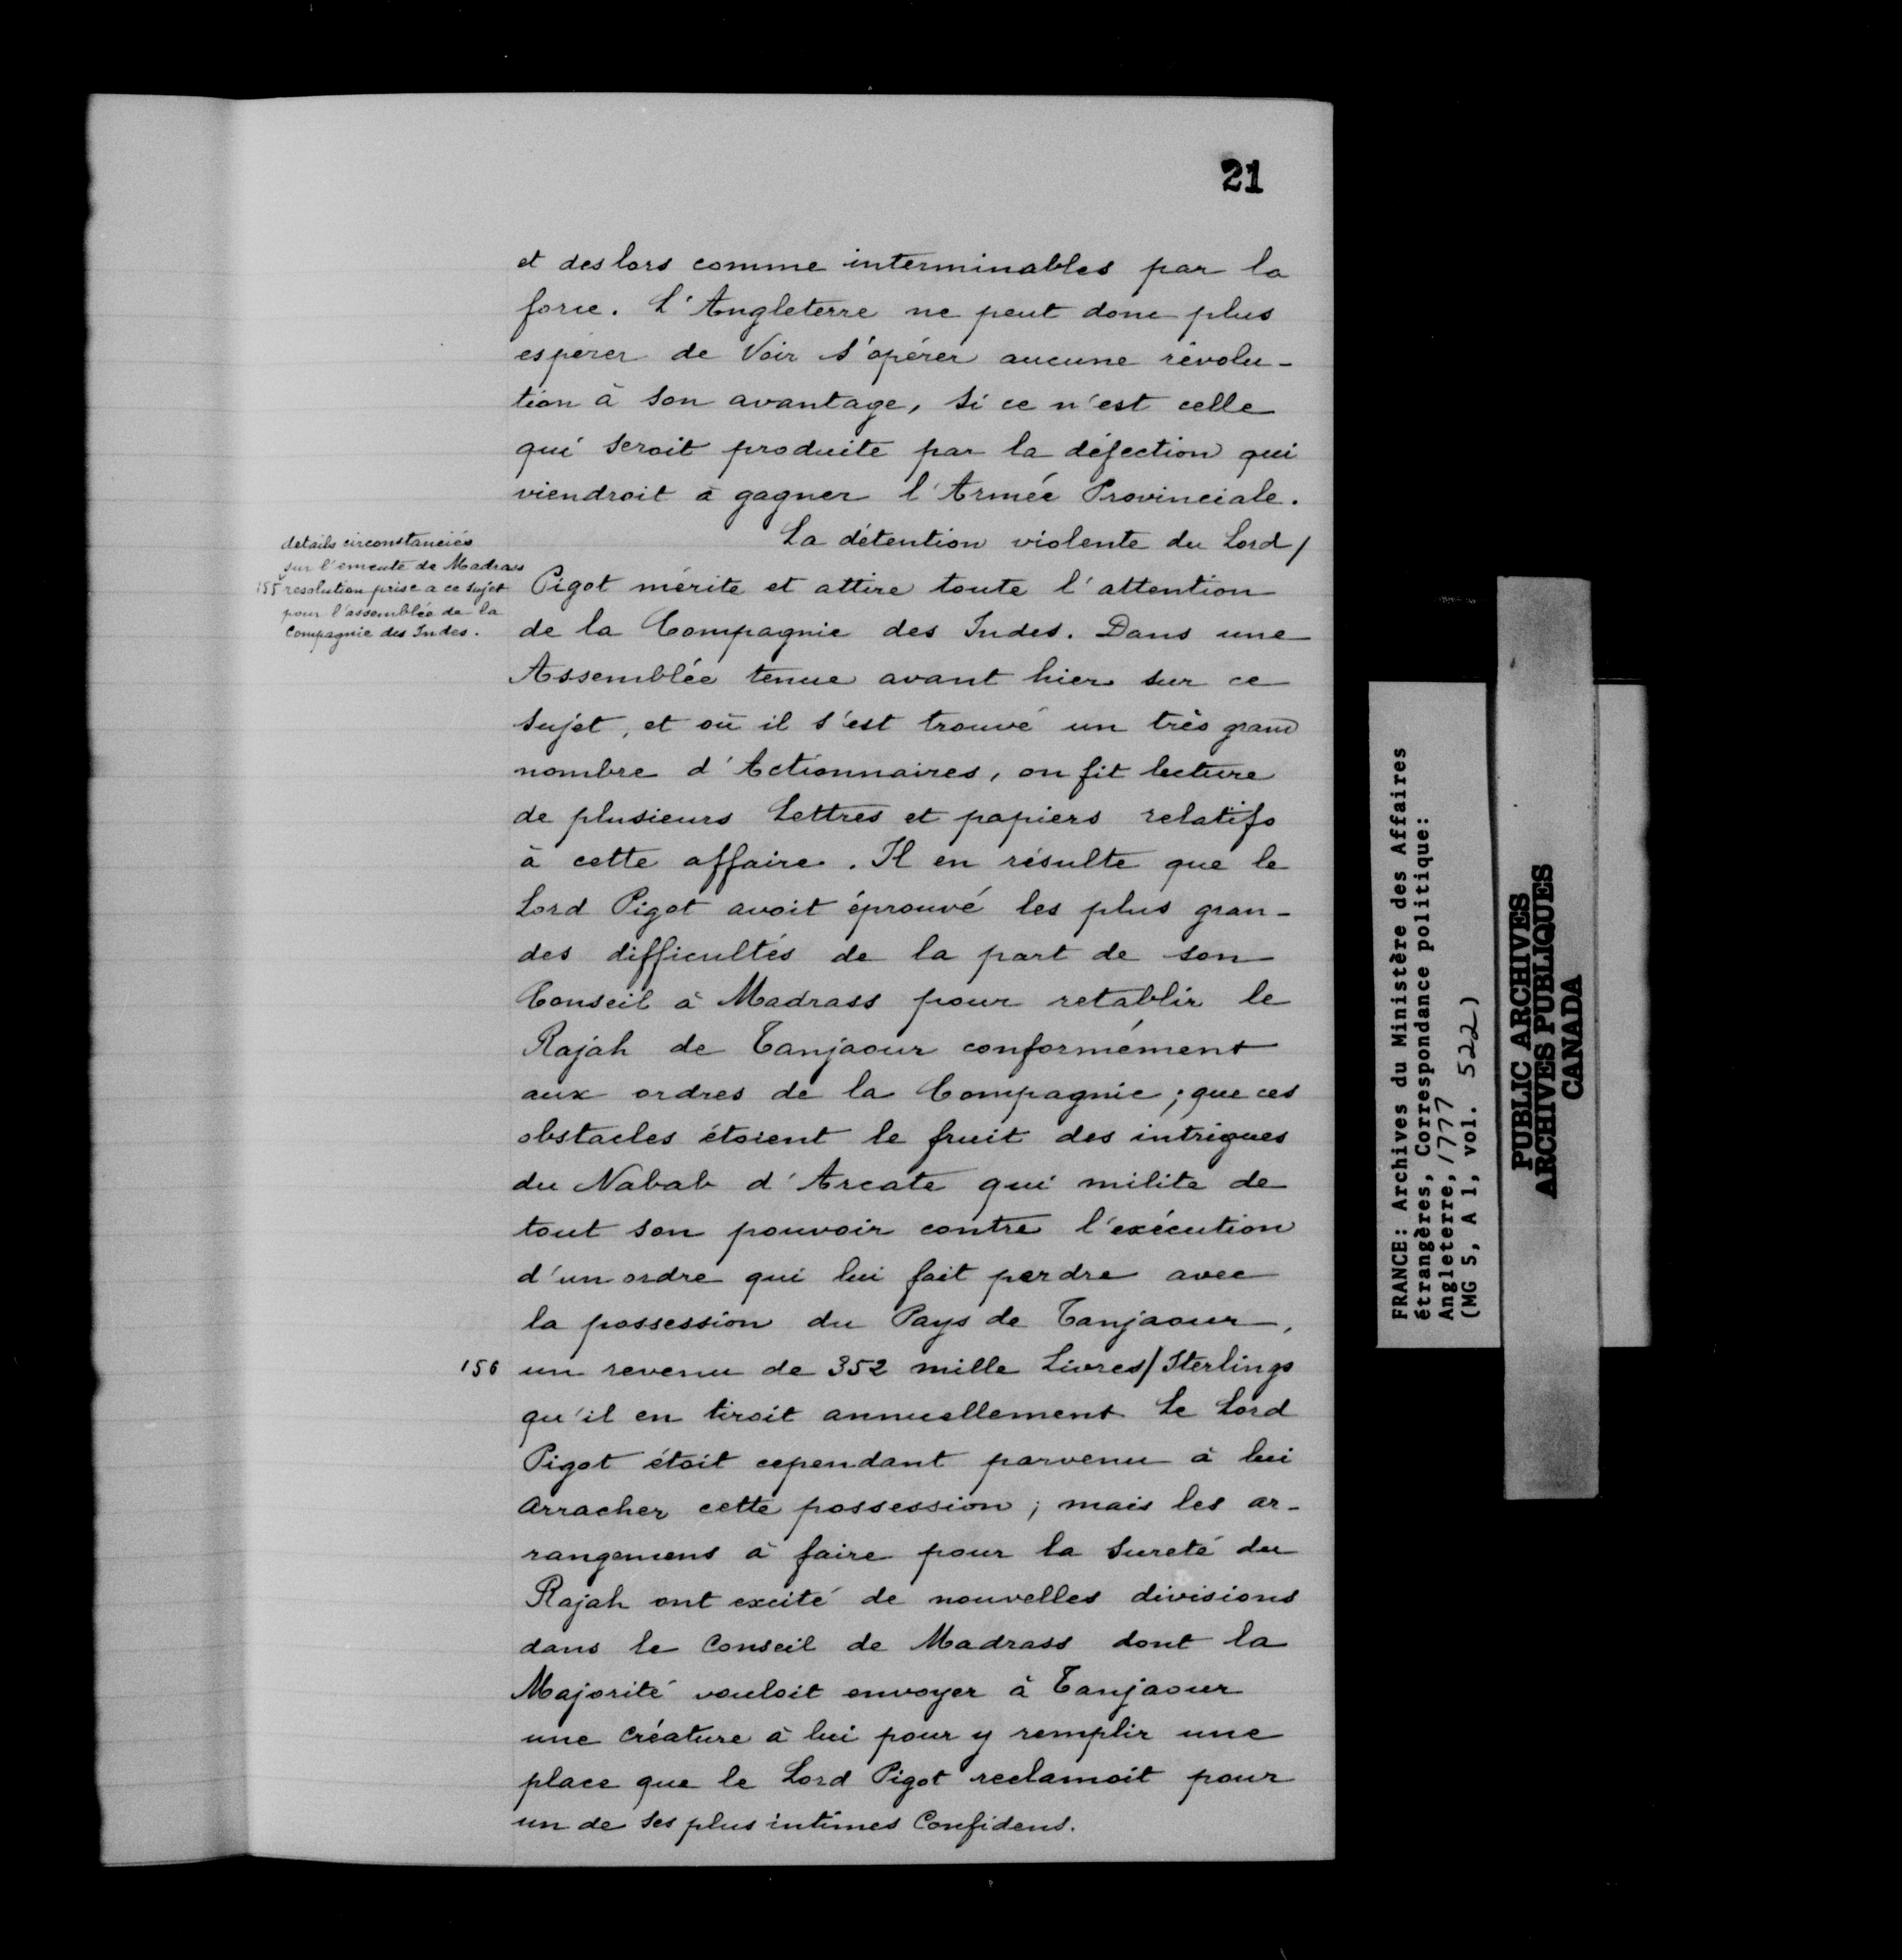 21
et des lors comme interminables par la
force. L'Angleterre ne peut donc plus
espérer de Voir s'opérer aucune révolu-
tion à son avantage, si ce n'est celle
qui seroit produite par la défection qui
viendroit à gagner l'Armée Provinciale.
details circonstanciés
sur l'emeute de Madrass
155 resolution prise a ce sujet
pour l'assemblée de la
Compagnie des Indes.
La détention violente du Lord/
Pigot mérite et attire toute l'attention
de la Compagnie des Indes. Dans une
Assemblée tenue avant hier sur ce
sujet, et où il s'est trouvé un très grand
nombre d'Actionnaires, on fit lecture
de plusieurs Lettres et papiers relatifs
à cette affaire. Il en résulte que le
Lord Pigot avoit éprouvé les plus gran-
des difficultés de la part de son
Conseil à Madrass pour retablir le
Rajah de Tanjaour conformément
aux ordres de la Compagnie; que ces
obstacles étoient le fruit des intrigues
du Nabab d'Arcate qui milite de
tout son pouvoir contre l'exécution
d'un ordre qui lui fait perdre avec
la possession du Pays de Tanjaour,
156 un revenu de 352 mille Livres/Sterlings
qu'il en tiroit annuellement Le Lord
Pigot étoit cependant parvenu à lui
arracher cette possession; mais les ar-
rangemens à faire pour la sureté du
Rajah ont excité de nouvelles divisions
dans le Conseil de Madrass dont la
Majorité vouloit envoyer à Tanjaour
une Créature à lui pour y remplir une
place que le Lord Pigot reclamoit pour
un de ses plus intimes Confidens.
FRANCE: Archives du Ministère des Affaires
étrangères, Correspondance politique:
Angleterre, 1777
(MG 5, A 1, vol. 522)
PUBLIC ARCHIVES
ARCHIVES PUBLIQUES
CANADA